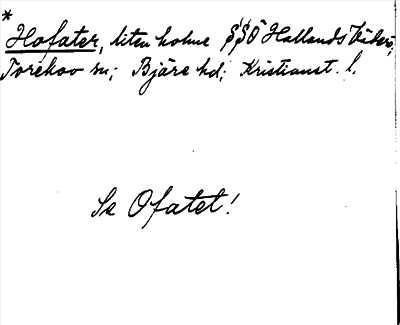 *
Hofater, liten holme SSO Hallands Väderö,
Torekov sn; Bjäre hd; Kristianst. l.
Se Ofatet!